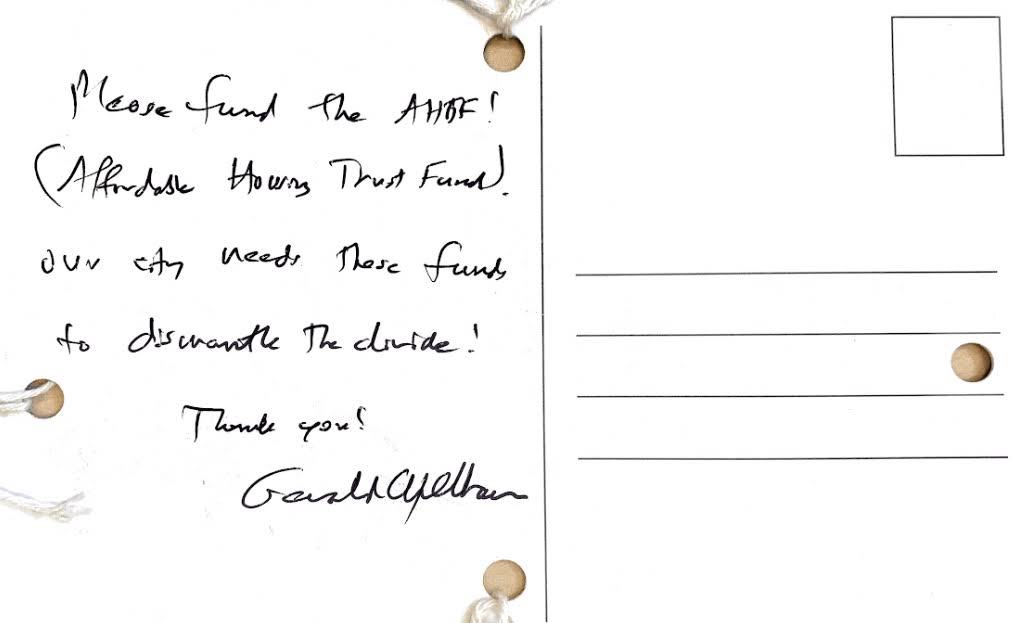 Please fund the AHTF!
(Affordable Housing Trust Fund).
our city needs these funds
to dismantle the divide!
Thank you!
Gerald